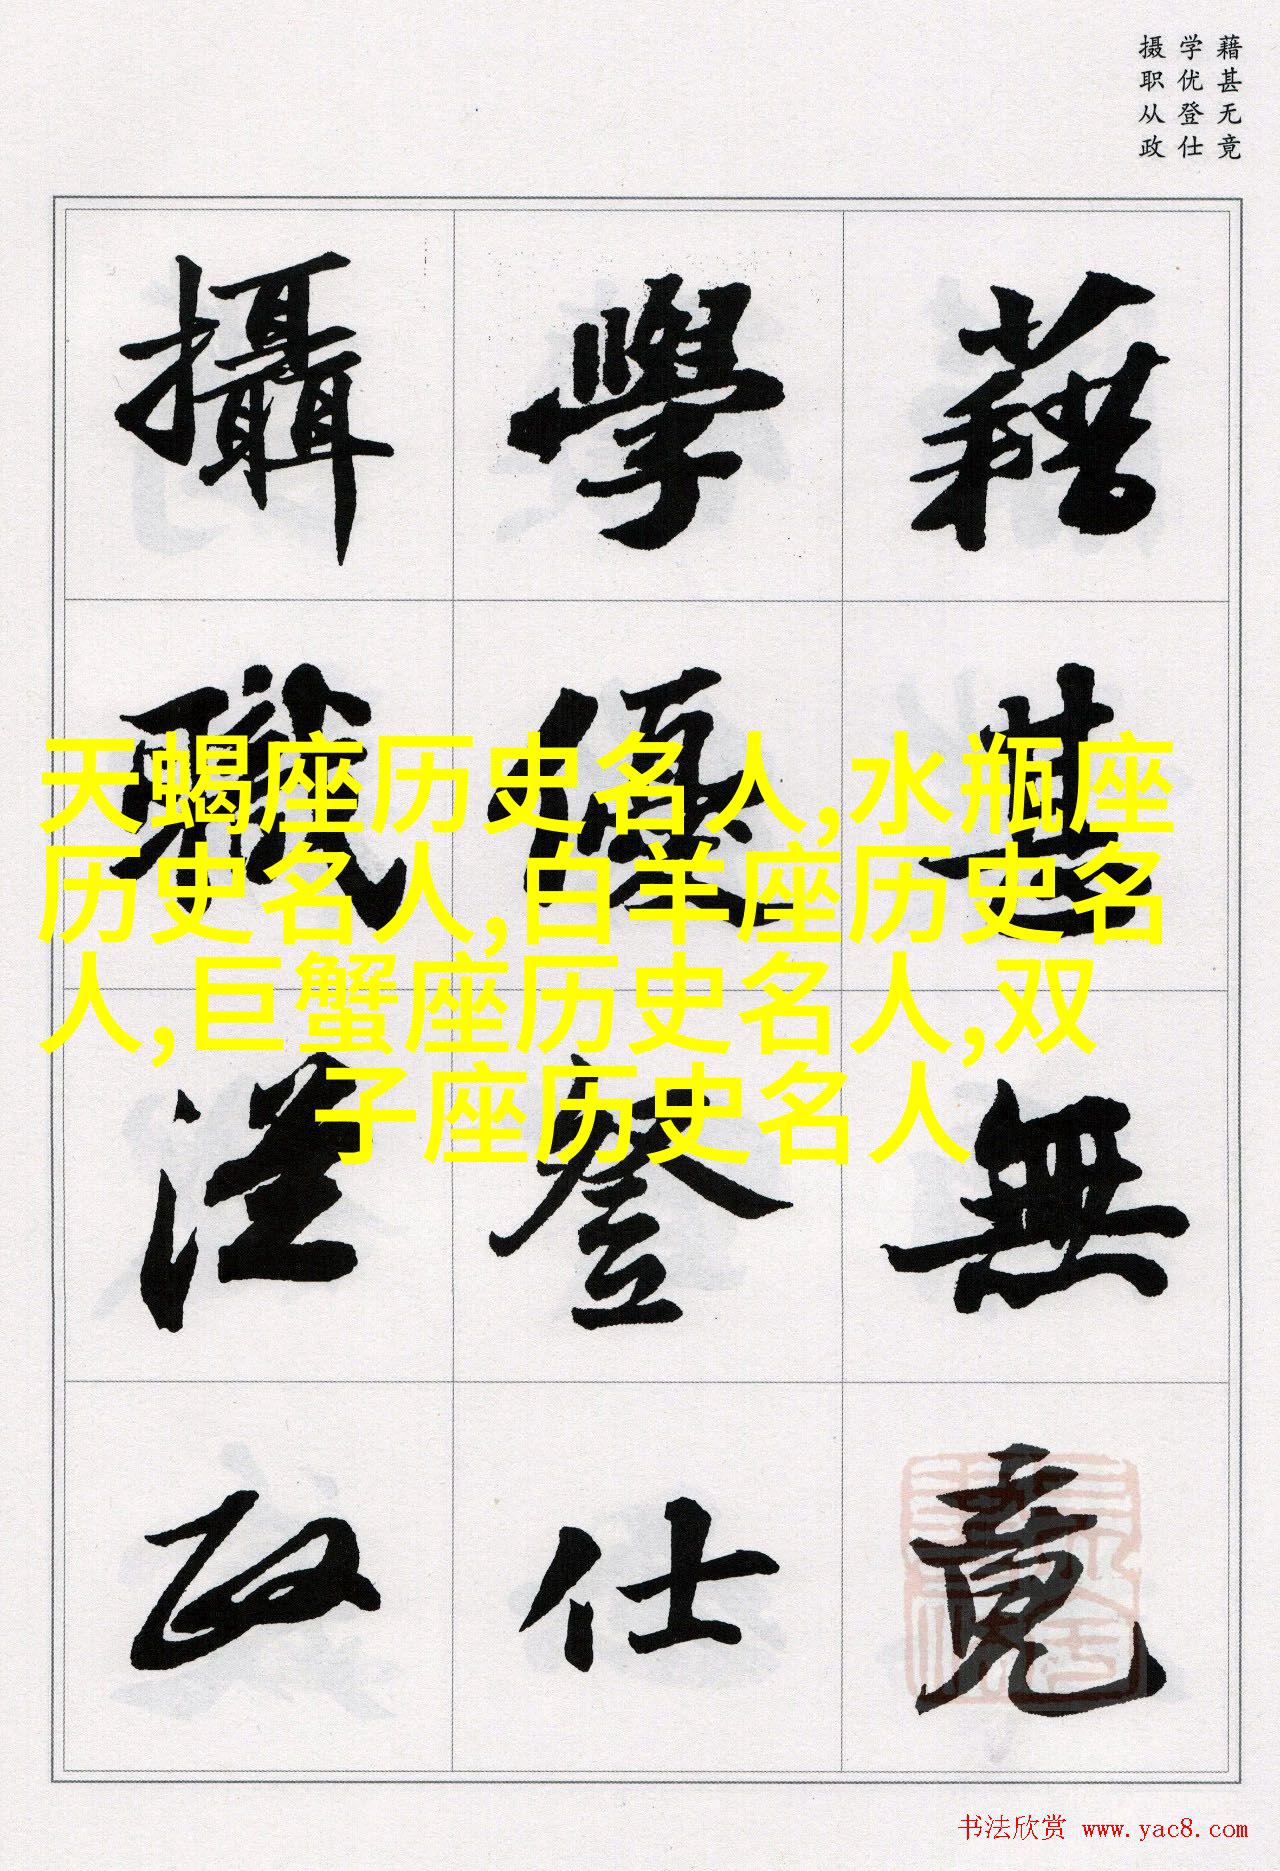 藉甚无竟
学优登仕
摄职从政
藉甚無竟
學優登仕
攝職從政
天蝎座历史名人,水瓶座
历史名人,白羊座历史名
人,巨蟹座历史名人,双
子座历史名人
书法欣赏 www.yac8.com